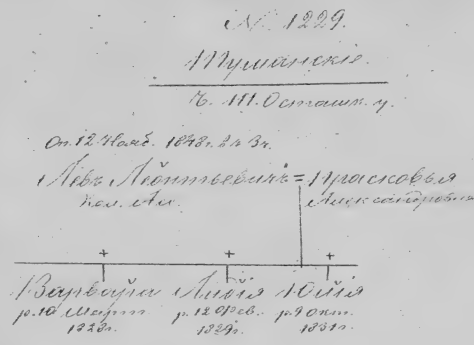 № 1229.
Туманскіе.
Ч. III. Осташк. у.
Оп. 12 Нояб. 1848г.
Левъ Леонтьевичъ = Прасковья
Кол. Ас. Александровна
+ + +
Варвара Лидія Юлія
р. 10 Март р. 12 Фев. р. 9 окт.
1828г. 1829г. 1831г.